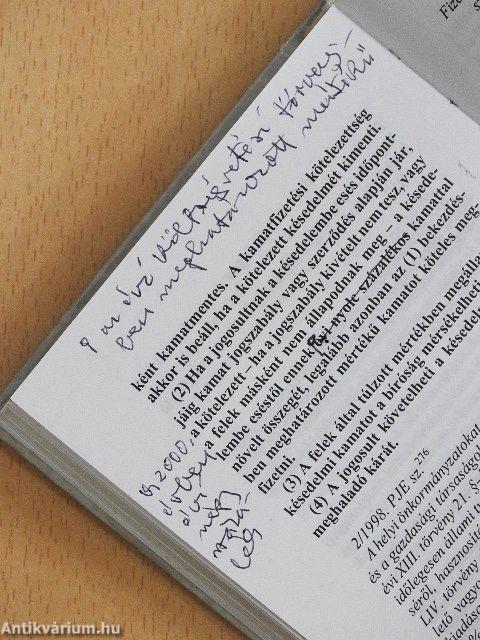 Fize
az évi költségvetési törvény-
ben meghatározott mértékű
ként kamatmentes. A kamatfizetési kötelezettség
akkor is beáll, ha a kötelezett késedelmét kimenti.
(2) Ha a jogosultnak a késedelembe esés időpont-
jáig kamat jogszabály vagy szerződés alapján jár,
a kötelezett – ha a jogszabály kivételt nem tesz, vagy
a felek másként nem állapodnak meg – a késede-
lembe eséstől ennek kamattal
növelt összegét, legalább azonban az (1) bekezdés
ben meghatározott mértékű kamatot köteles meg
fizetni.
(3) A felek által túlzott mértékben megálla
késedelmi kamatot a bíróság mérsékelheti
(4) A jogosult követelheti a késedel
meghaladó kárát.
2000.
évben
2/1998. PJE sz.
A helyi önkormányzatokat
és a gazdasági társaságok
évi XIII. törvény 21. §
időlegesen állami t
séről, hasznosít
LIV. törvény
lető vagyo
Antikvárium.hu